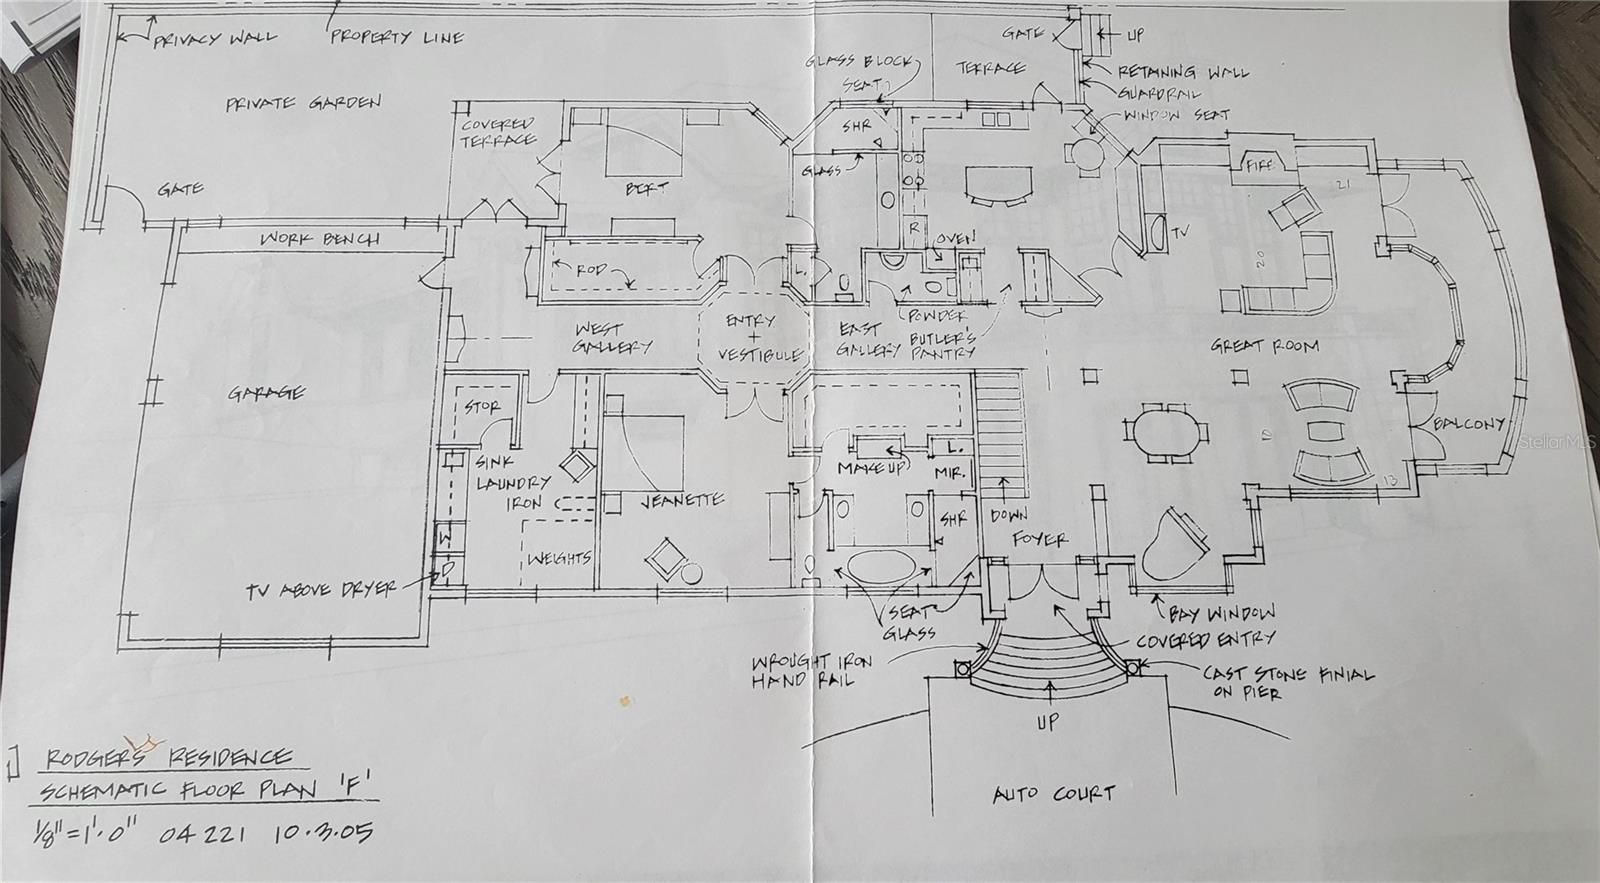 PRIVACY WALL
PROPERTY LINE
GATE
UP
GLASS BLOCK
SEAT
TERRACE
RETAINING WALL
GUARDRAIL
WINDOW SEAT
PRIVATE GARDEN
COVERED
TERRACE
SHR
GLASS
FIRE
21
GATE
BERT
WORK BENCH
R
OVEN
TV
ROD
L.
20
WEST
GALLERY
ENTRY
+
VESTIBULE
EAST
GALLERY
POWDER
BUTLER'S
PANTRY
GREAT ROOM
GARAGE
STOR
BALCONY
StellarMLS
SINK
LAUNDRY
IRON
MAKEUP
L.
MIR.
10
13
JEANETTE
SHR
DOWN
FOYER
W
D
WEIGHTS
TV ABOVE DRYER
SEAT
GLASS
BAY WINDOW
COVERED ENTRY
WROUGHT IRON
HAND RAIL
CAST STONE FINIAL
ON PIER
UP
AUTO COURT
RODGERS RESIDENCE
SCHEMATIC FLOOR PLAN 'F'
1/8"=1'-0" 04 221 10.3.05